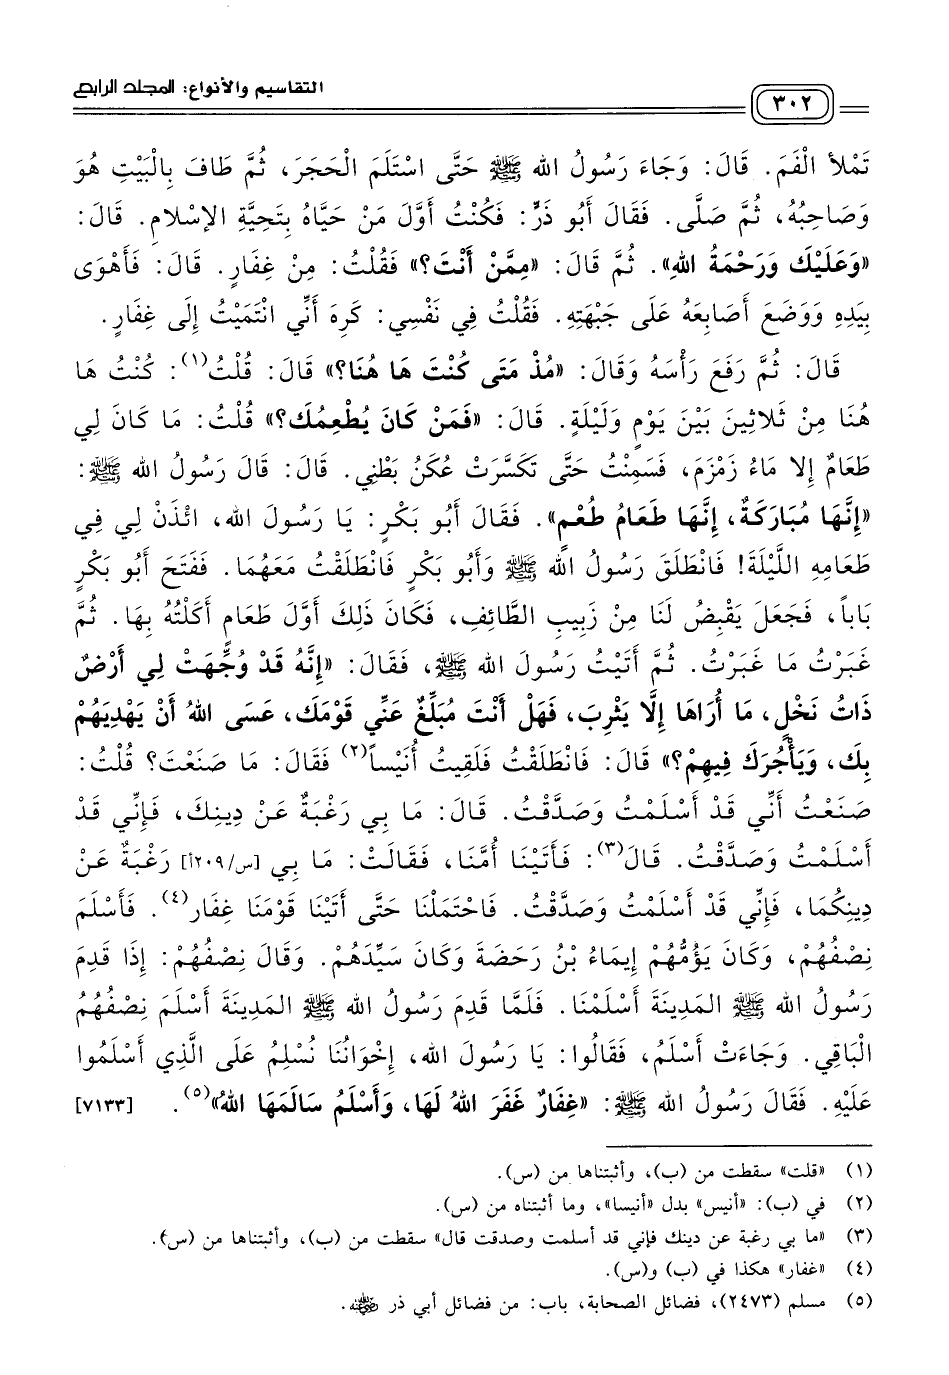 التقاسيم والأنواع: المجلد الرابع
٣٠٢
تَمْلأ الْفَمَ. قَالَ: وَجَاءَ رَسُولُ الله ﷺ حَتَّى اسْتَلَمَ الْحَجَرَ، ثُمَّ طَافَ بِالْبَيْتِ هُوَ
وَصَاحِبُهُ، ثُمَّ صَلَّى. فَقَالَ أَبُو ذَرٍّ: فَكُنْتُ أَوَّلَ مَنْ حَيَّاهُ بِتَحِيَّةِ الإِسْلامِ. قَالَ:
«وَعَلَيْكَ وَرَحْمَةُ اللهِ». ثُمَّ قَالَ: «مِمَّنْ أَنْتَ؟» فَقُلْتُ: مِنْ غِفَارٍ. قَالَ: فَأَهْوَى
بِيَدِهِ وَوَضَعَ أَصَابِعَهُ عَلَى جَبْهَتِهِ. فَقُلْتُ فِي نَفْسِي: كَرِهَ أَنِّي انْتَمَيْتُ إِلَى غِفَارٍ.
قَالَ: ثُمَّ رَفَعَ رَأْسَهُ وَقَالَ: «مُذْ مَتَى كُنْتَ هَا هُنَا؟» قَالَ: قُلْتُ(١): كُنْتُ هَا
هُنَا مِنْ ثَلاثِينَ بَيْنَ يَوْمٍ وَلَيْلَةٍ. قَالَ: «فَمَنْ كَانَ يُطْعِمُكَ؟» قُلْتُ: مَا كَانَ لِي
طَعَامٌ إِلا مَاءُ زَمْزَمَ، فَسَمِنْتُ حَتَّى تَكَسَّرَتْ عُكَنُ بَطْنِي. قَالَ: قَالَ رَسُولُ الله ﷺ:
«إِنَّهَا مُبَارَكَةٌ، إِنَّهَا طَعَامُ طُعْمٍ». فَقَالَ أَبُو بَكْرٍ: يَا رَسُولَ الله، ائْذَنْ لِي فِي
طَعَامِهِ اللَّيْلَةَ! فَانْطَلَقَ رَسُولُ الله ﷺ وَأَبُو بَكْرٍ فَانْطَلَقْتُ مَعَهُمَا. فَفَتَحَ أَبُو بَكْرٍ
بَاباً، فَجَعَلَ يَقْبِضُ لَنَا مِنْ زَبِيبِ الطَّائِفِ، فَكَانَ ذَلِكَ أَوَّلَ طَعَامٍ أَكَلْتُهُ بِهَا. ثُمَّ
غَبَرْتُ مَا غَبَرْتُ. ثُمَّ أَتَيْتُ رَسُولَ الله ﷺ، فَقَالَ: «إِنَّهُ قَدْ وُجِّهَتْ لِي أَرْضٌ
ذَاتُ نَخْلٍ، مَا أُرَاهَا إِلَّا يَثْرِبَ، فَهَلْ أَنْتَ مُبَلِّغٌ عَنِّي قَوْمَكَ، عَسَى اللهُ أَنْ يَهْدِيَهُمْ
بِكَ، وَيَأْجُرَكَ فِيهِمْ؟» قَالَ: فَانْطَلَقْتُ فَلَقِيتُ أُنَيْساً(٢) فَقَالَ: مَا صَنَعْتَ؟ قُلْتُ:
صَنَعْتُ أَنِّي قَدْ أَسْلَمْتُ وَصَدَّقْتُ. قَالَ: مَا بِي رَغْبَةٌ عَنْ دِينِكَ، فَإِنِّي قَدْ
أَسْلَمْتُ وَصَدَّقْتُ. قَالَ(٣): فَأَتَيْنَا أُمَّنَا، فَقَالَتْ: مَا بِي [س/٢٠٩أ] رَغْبَةٌ عَنْ
دِينِكُمَا، فَإِنِّي قَدْ أَسْلَمْتُ وَصَدَّقْتُ. فَاحْتَمَلْنَا حَتَّى أَتَيْنَا قَوْمَنَا غِفَار(٤). فَأَسْلَمَ
نِصْفُهُمْ، وَكَانَ يَؤُمُّهُمْ إِيمَاءُ بْنُ رَحَضَةَ وَكَانَ سَيِّدَهُمْ. وَقَالَ نِصْفُهُمْ: إِذَا قَدِمَ
رَسُولُ الله ﷺ المَدِينَةَ أَسْلَمْنَا. فَلَمَّا قَدِمَ رَسُولُ الله ﷺ المَدِينَةَ أَسْلَمَ نِصْفُهُمُ
الْبَاقِي. وَجَاءَتْ أَسْلَمُ، فَقَالُوا: يَا رَسُولَ الله، إِخْوَانُنَا نُسْلِمُ عَلَى الَّذِي أَسْلَمُوا
عَلَيْهِ. فَقَالَ رَسُولُ الله ﷺ: «غِفَارٌ غَفَرَ اللهُ لَهَا، وَأَسْلَمُ سَالَمَهَا اللهُ»(٥). [٧١٣٣]
(١) «قلت» سقطت من (ب)، وأثبتناها من (س).
(٢) في (ب): «أنيس» بدل «أنيسا»، وما أثبتناه من (س).
(٣) «ما بي رغبة عن دينك فإني قد أسلمت وصدقت قال» سقطت من (ب)، وأثبتناها من (س).
(٤) «غفار» هكذا في (ب) و(س).
(٥) مسلم (٢٤٧٣)، فضائل الصحابة، باب: من فضائل أبي ذر رضي الله عنه.